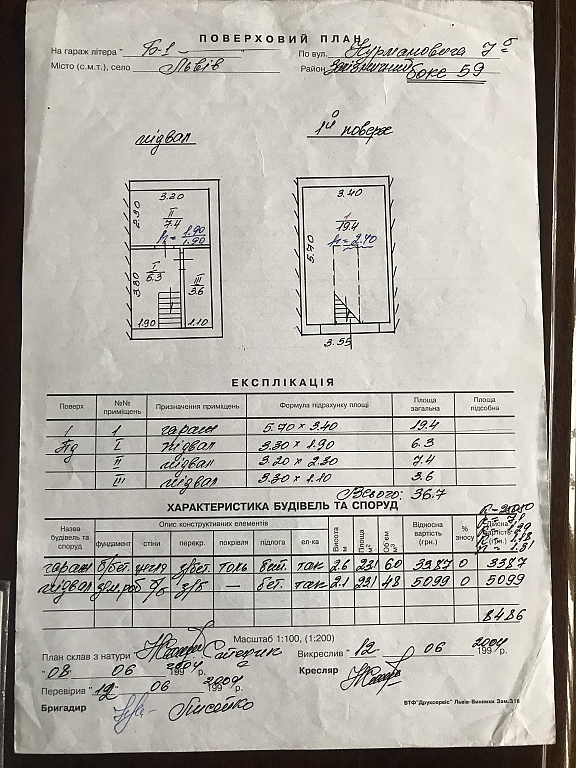 ПОВЕРХОВИЙ ПЛАН
На гараж літера "Гб-1" По вул. Курмановича 7б
Місто (с.м.т.), село Львів Район Залізничний бокс 59
підвал 1й поверх
3.20
II
7.4
2.30
h = 1.90
1.90
I
6.3
3.30
III
3.6
1.90 1.10
3.40
1
19.4
h = 2.40
5.70
3.55
ЕКСПЛІКАЦІЯ
Поверх №№ приміщень Призначення приміщень Формула підрахунку площі Площа загальна Площа підсобна
1 1 гараж 5.70 × 3.40 19.4
Під I підвал 3.30 × 1.90 6.3
II підвал 3.20 × 2.30 7.4
III підвал 3.30 × 1.10 3.6
Всього: 36.7
ХАРАКТЕРИСТИКА БУДІВЕЛЬ ТА СПОРУД
Назва будівель та споруд Опис конструктивних елементів Висота м Площа м² Об'єм м³ Відносна вартість (грн.) % зносу Дійсна вартість (грн.)
фундамент стіни перекр. покрівля підлога ел-ка
гараж б/бет. цегла з/бет. толь бет. так 2.6 23.1 60 3387 0 3387
підвал з/б — бет. так 2.1 23.1 48 5099 0 5099
8486
Масштаб 1:100, (1:200)
План склав з натури Викреслив "12" 06 2004 199 р.
"08" 06 2004 199 р. Кресляр
Перевірив "12" 06 2004 199 р.
Бригадир
ВТФ"Друксервіс" Львів-Винники Зам.318